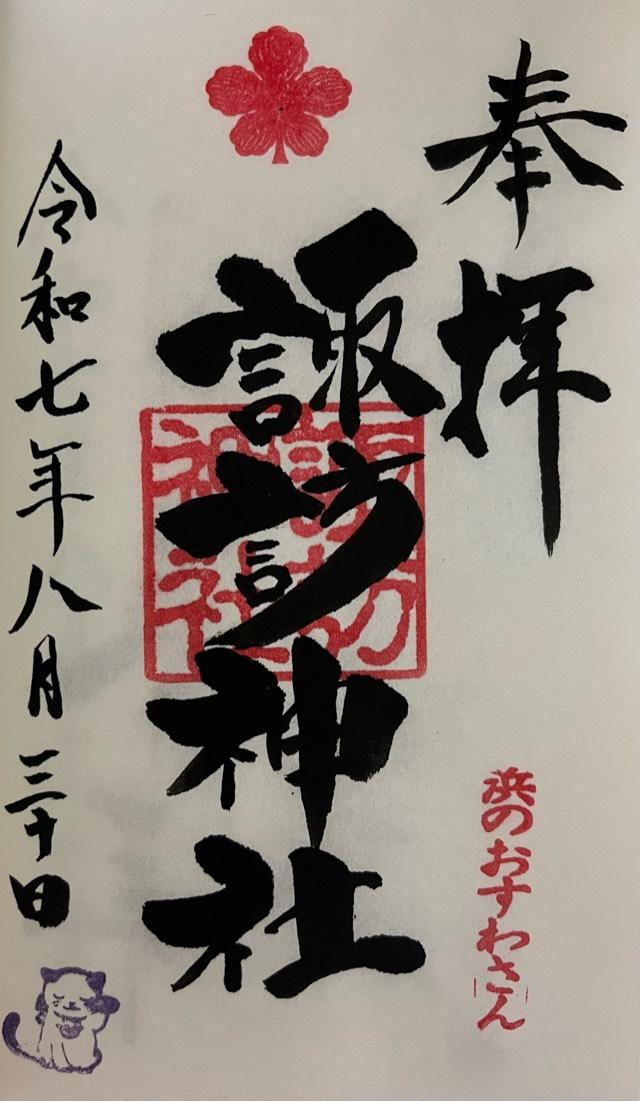 奉拝
諏訪神社
諏訪
神社
浜のおすわさん
令和七年八月三十日